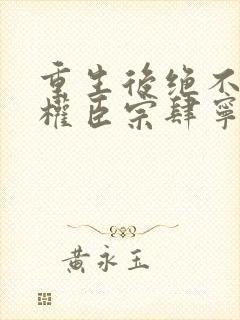 重生後绝不
權臣宗肆寧
黃永玉